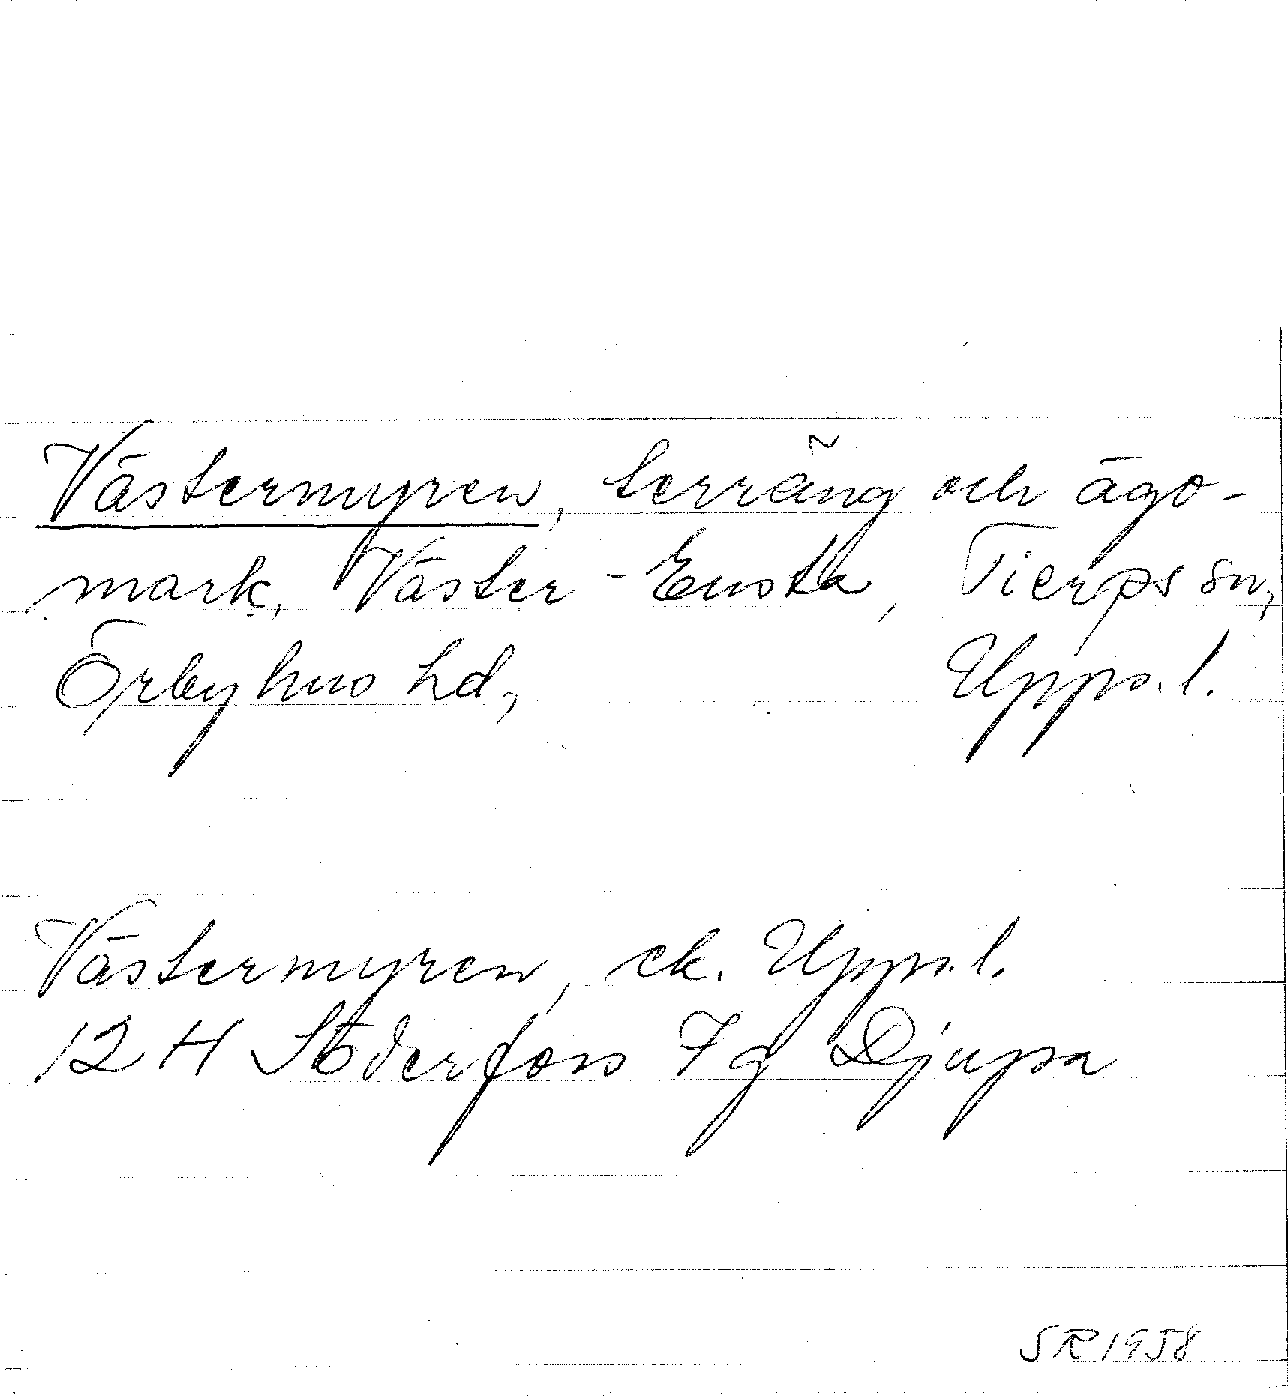 Västermyren, terräng och ägo-
mark, Väster-Ensta, Tierps sn,
Örbyhus hd, Upps. l.
Västermyren, ek. Upps. l.
12 H Söderfors 7 g Djupa
SR 1958